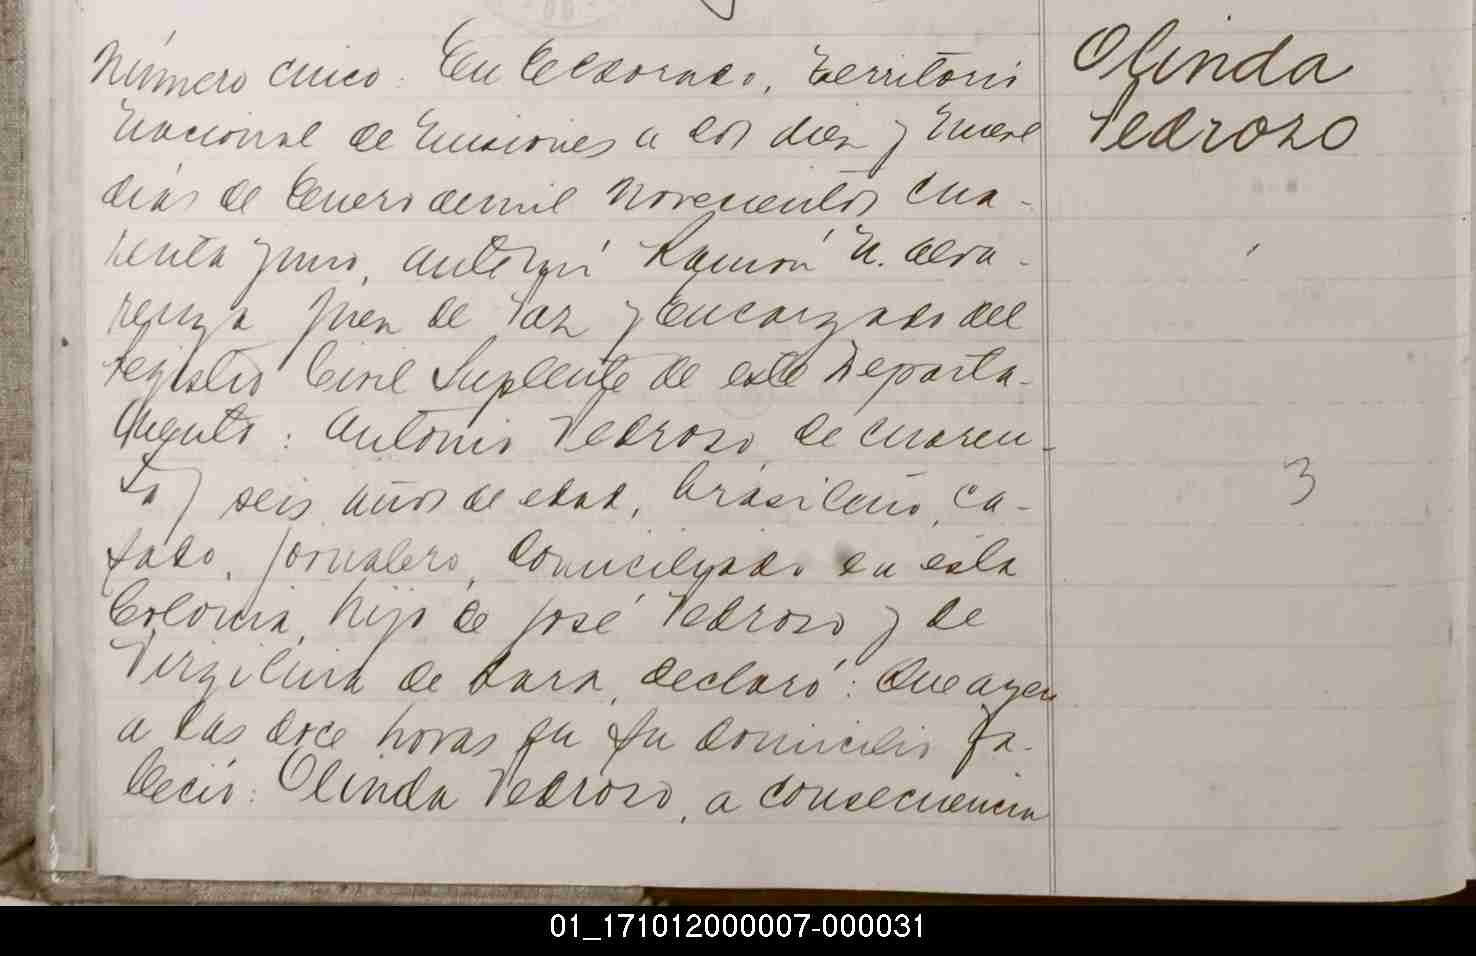 Número cinco: En Eldorado, Territorio
Nacional de Misiones a los diez y nueve
días de Enero de mil novecientos cua-
renta y uno, ante mí Ramón N. Alva-
renga Juez de Paz y Encargado del
Registro Civil Suplente de este Departa-
mento: Antonio Pedrozo, de cuaren-
ta y seis años de edad, brasileño, ca-
sado, jornalero, domiciliado en esta
Colonia, hijo de José Pedrozo y de
Virgilina de Lara, declaró: Que ayer
a las doce horas en su domicilio fa-
lleció: Olinda Pedrozo, a consecuencia
Olinda
Pedrozo
3
01_171012000007-000031